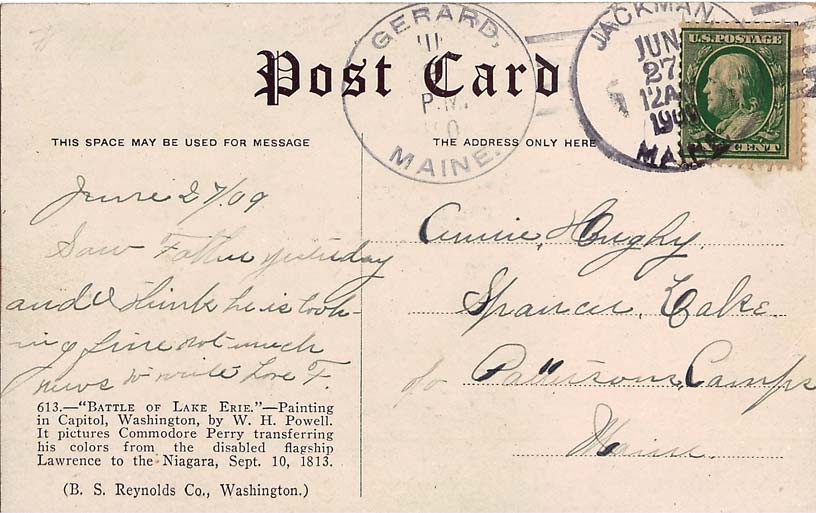 Post Card
GERARD,
P.M.
MAINE.
JACKMAN
JUN
27
12A
190
MAINE
U.S. POSTAGE
CENT
THIS SPACE MAY BE USED FOR MESSAGE
THE ADDRESS ONLY HERE
June 27/09
Saw Father yesterday
and I think he is look-
ing fine not much
news to write Love F.
Annie, Hughy
Spencer, Lake
c/o Pattersons, Camps
Maine
613.—"BATTLE OF LAKE ERIE."—Painting
in Capitol, Washington, by W. H. Powell.
It pictures Commodore Perry transferring
his colors from the disabled flagship
Lawrence to the Niagara, Sept. 10, 1813.
(B. S. Reynolds Co., Washington.)